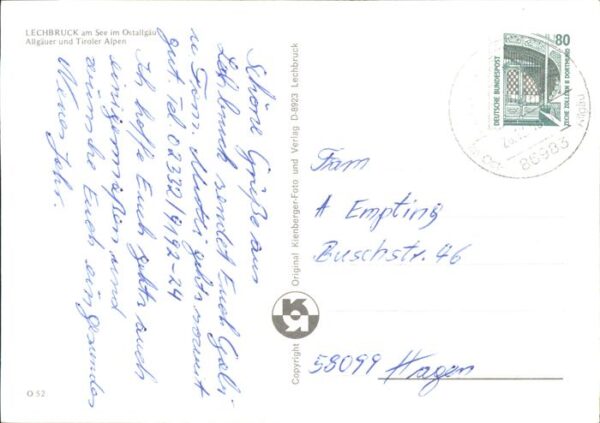 LECHBRUCK am See im Ostallgäu
Allgäuer und Tiroler Alpen
Schöne Grüße aus
Lechbruck sendet Euch Gabi
u Tom. Mutti gehts soweit
gut. Tel 02332/9192-24
Ich hoffe Euch gehts auch
einigermaßen und
wünsche Euch ein gesundes
Neues Jahr.
O 52
Copyright Original Kienberger-Foto und Verlag D-8923 Lechbruck
DEUTSCHE BUNDESPOST
80
ZECHE ZOLLERN II DORTMUND
86983
Fam
A Empting
Buschstr. 46
58099 Hagen